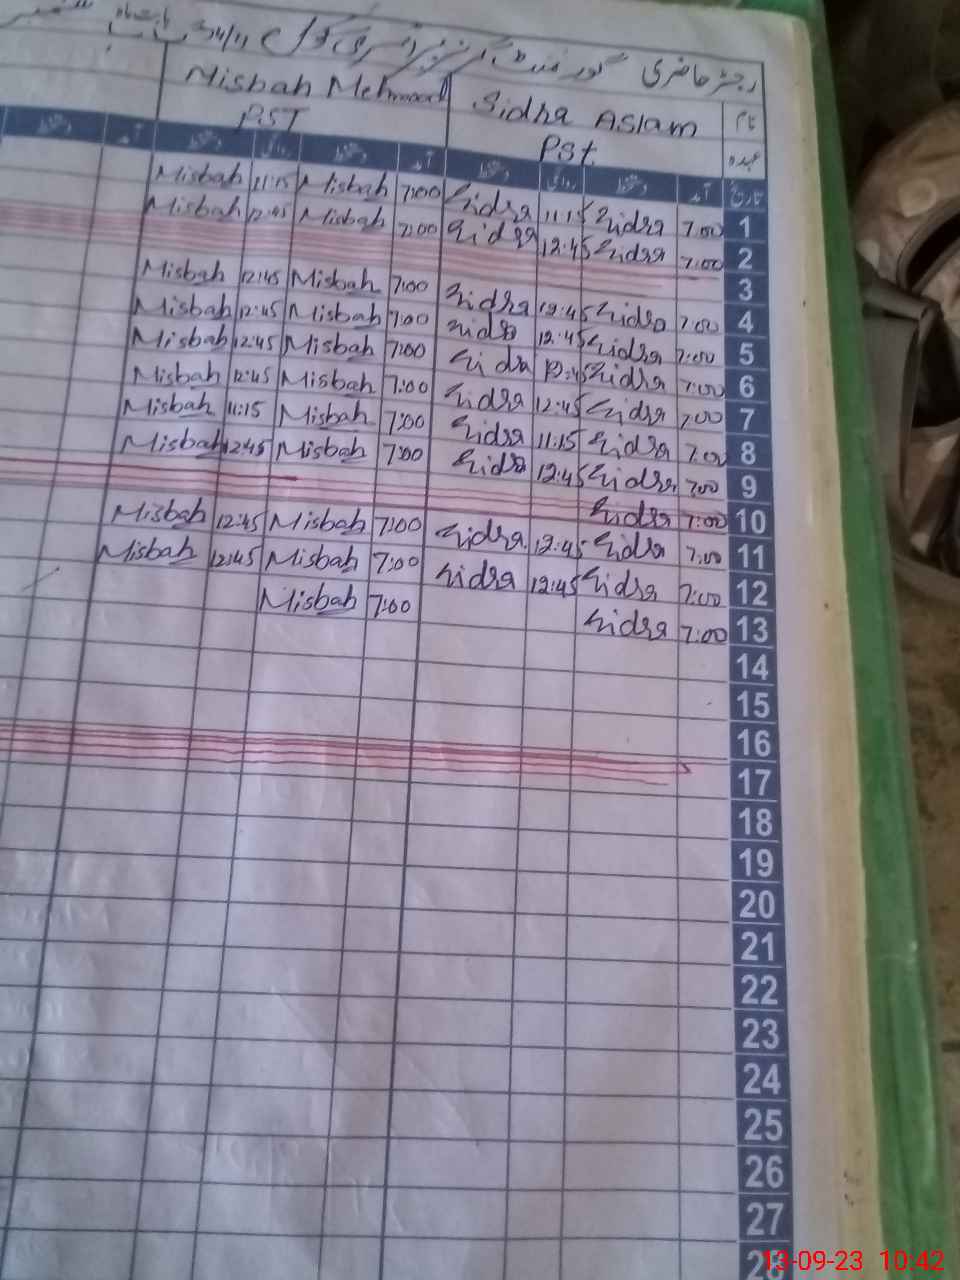 رجسٹر حاضری گورنمنٹ گرلز پرائمری سکول 34/11
نام Sidra Aslam Misbah Mehmood
عہدہ Pst. PST
تاریخ آمد دستخط روانگی دستخط آمد دستخط روانگی دستخط آمد دستخط
1 7:00 Sidra 11:15 Sidra 7:00 Misbah 11:15 Misbah
2 7:00 Sidra 12:45 Sidra 7:00 Misbah 12:45 Misbah
3
4 7:00 Sidra 12:45 Sidra 7:00 Misbah 12:45 Misbah
5 7:00 Sidra 12:45 Sidra 7:00 Misbah 12:45 Misbah
6 7:00 Sidra 12:45 Sidra 7:00 Misbah 12:45 Misbah
7 7:00 Sidra 12:45 Sidra 7:00 Misbah 12:45 Misbah
8 7:00 Sidra 11:15 Sidra 7:00 Misbah 11:15 Misbah
9 7:00 Sidra 12:45 Sidra 7:00 Misbah 12:45 Misbah
10 7:00 Sidra
11 7:00 Sidra 12:45 Sidra 7:00 Misbah 12:45 Misbah
12 7:00 Sidra 12:45 Sidra 7:00 Misbah 12:45 Misbah
13 7:00 Sidra 7:00 Misbah
14
15
16
17
18
19
20
21
22
23
24
25
26
27
28
13-09-23 10:42